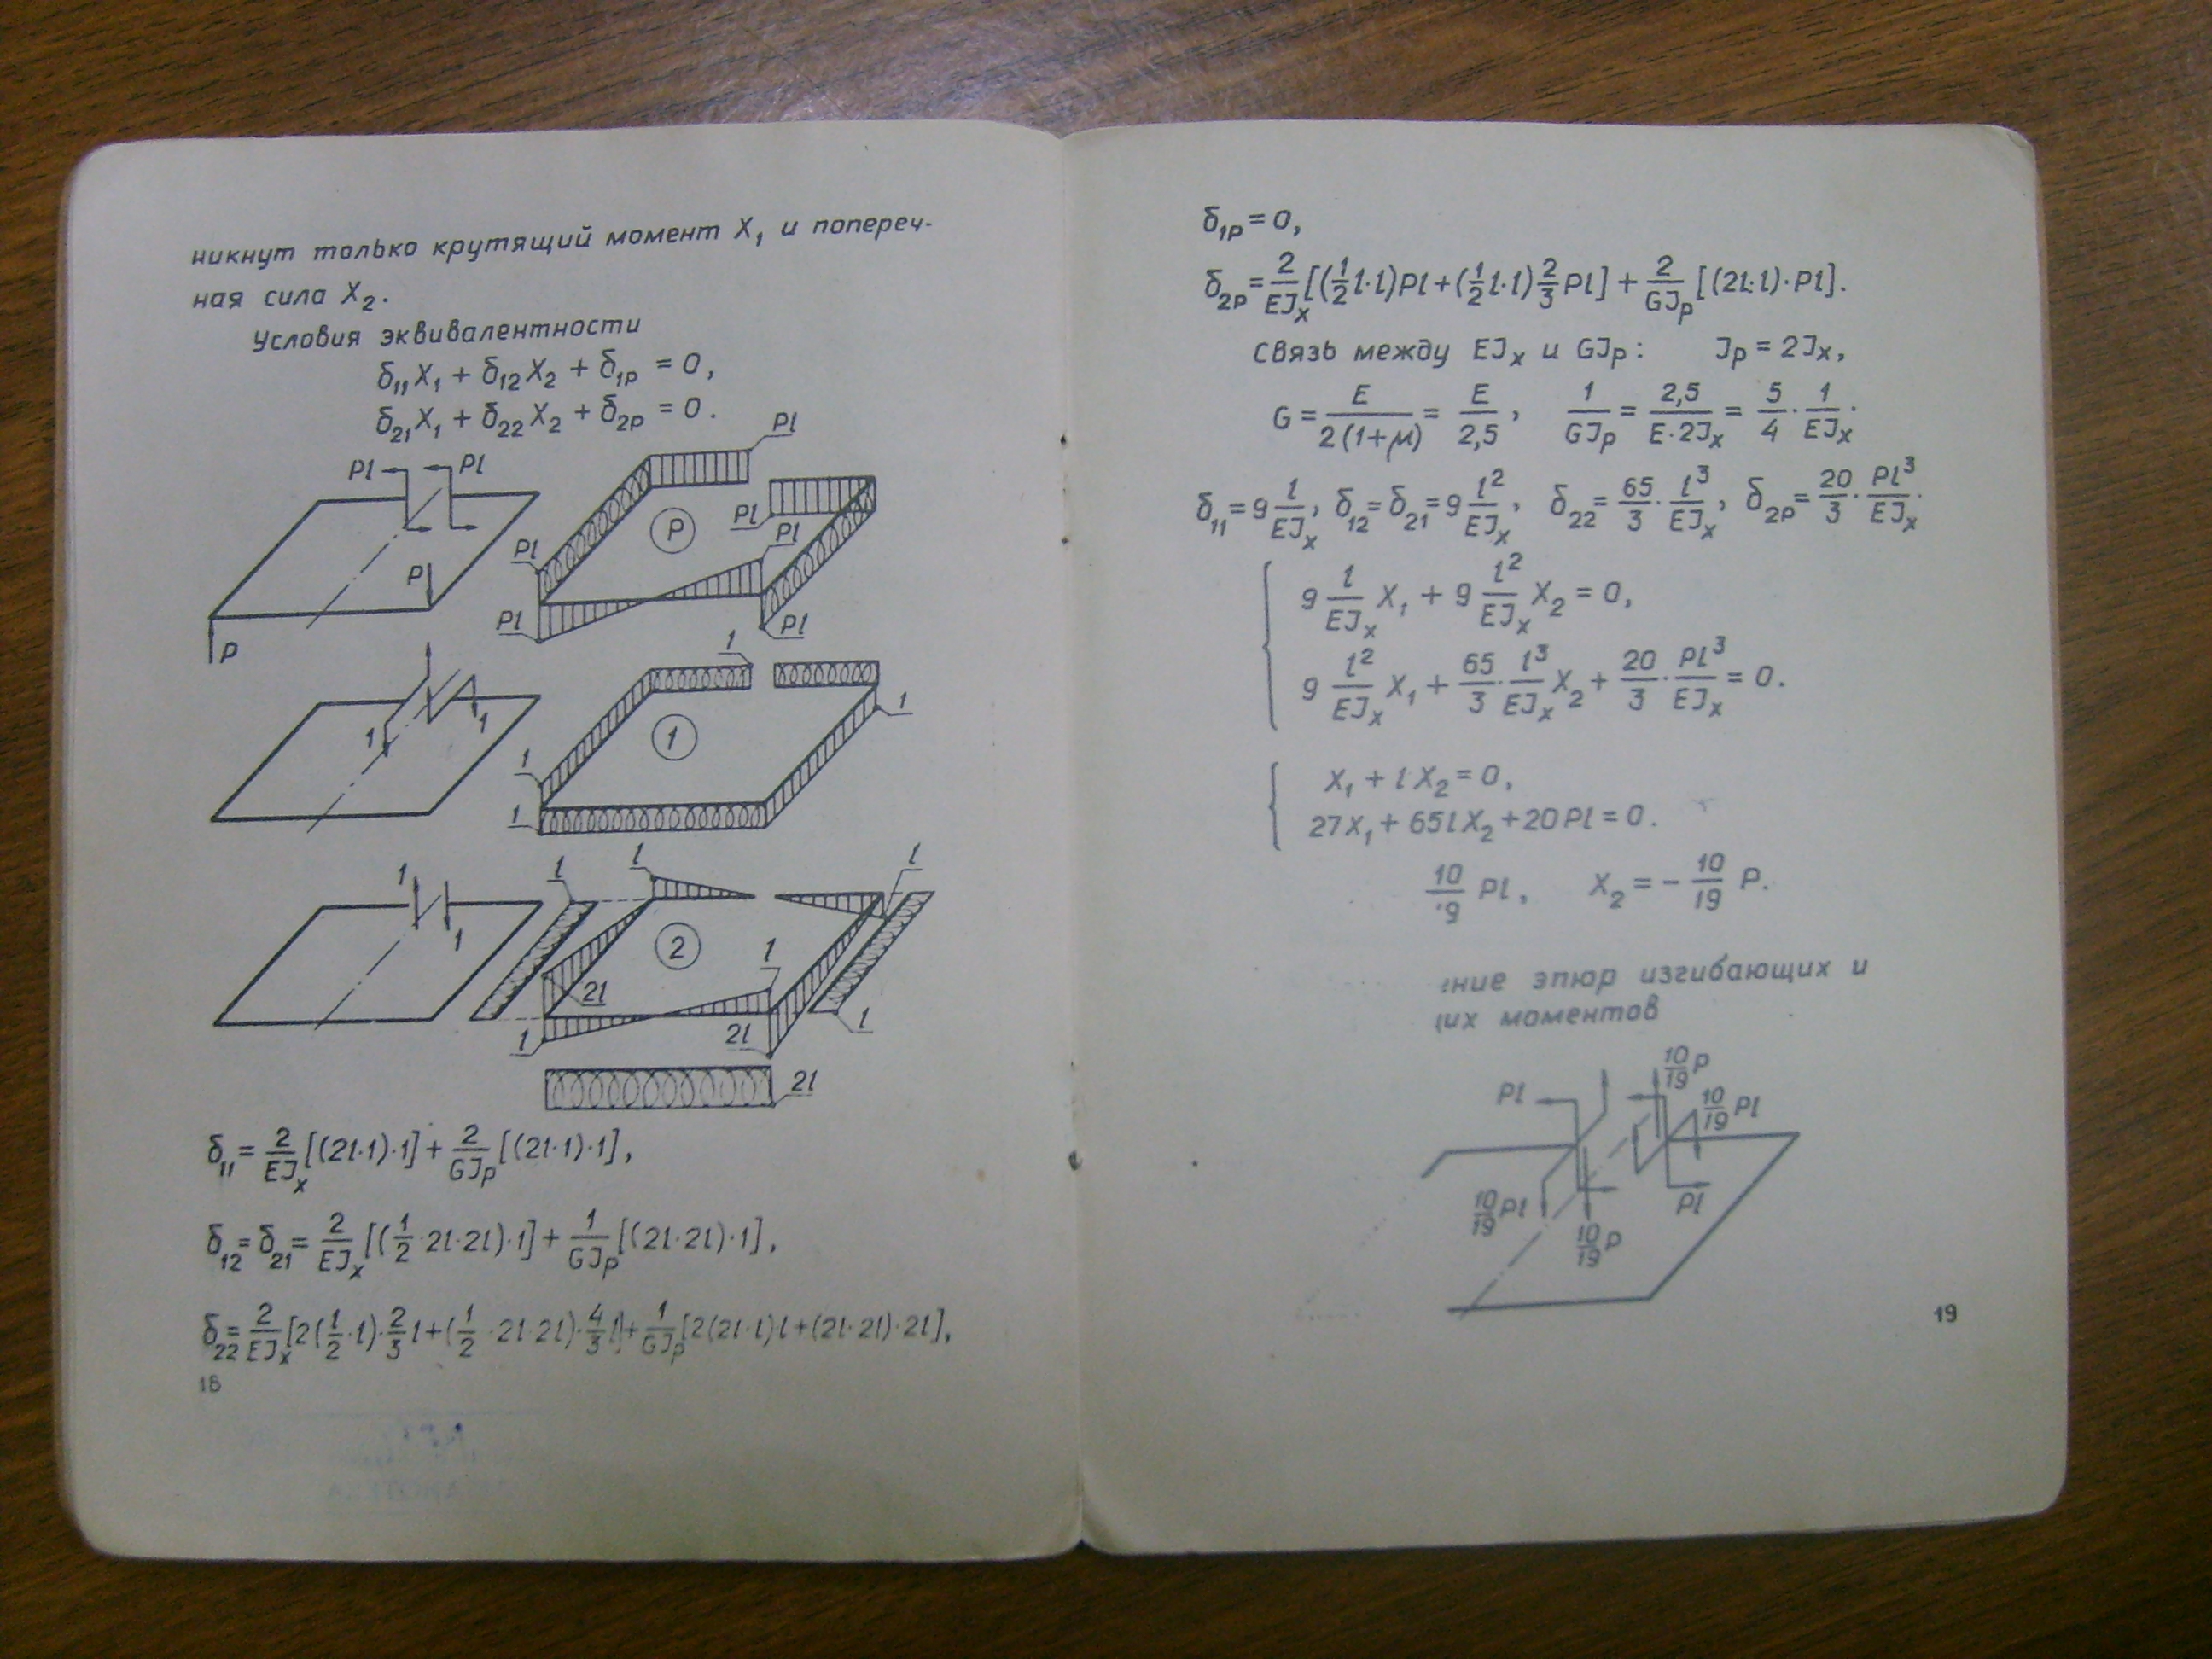 никнут только крутящий момент X₁ и попереч-
ная сила X₂.
Условия эквивалентности
δ₁₁X₁ + δ₁₂X₂ + δ₁P = 0,
δ₂₁X₁ + δ₂₂X₂ + δ₂P = 0.
Pl Pl P P
Pl Pl Pl Pl Pl Pl P
1 1
1 1 1 1 1
1 1
l l l 2l l l 2l l 2
2l
δ₁₁ = 2/EJx [(2l·1)·1] + 2/GJp [(2l·1)·1],
δ₁₂ = δ₂₁ = 2/EJx [(1/2·2l·2l)·1] + 1/GJp [(2l·2l)·1],
δ₂₂ = 2/EJx [2(1/2·l)·2/3 l + (1/2·2l·2l)·4/3 l] + 1/GJp [2(2l·l)l + (2l·2l)·2l],
18
δ₁P = 0,
δ₂P = 2/EJx [(1/2 l·l)Pl + (1/2 l·l) 2/3 Pl] + 2/GJp [(2l·l)·Pl].
Связь между EJx и GJp: Jp = 2Jx,
G = E/2(1+μ) = E/2,5, 1/GJp = 2,5/E·2Jx = 5/4 · 1/EJx.
δ₁₁ = 9 l/EJx, δ₁₂ = δ₂₁ = 9 l²/EJx, δ₂₂ = 65/3 · l³/EJx, δ₂P = 20/3 · Pl³/EJx.
9 l/EJx X₁ + 9 l²/EJx X₂ = 0,
9 l²/EJx X₁ + 65/3 · l³/EJx X₂ + 20/3 · Pl³/EJx = 0.
X₁ + lX₂ = 0,
27X₁ + 65lX₂ + 20Pl = 0.
10/19 Pl, X₂ = − 10/19 P.
ение эпюр изгибающих и
их моментов
10/19 P
Pl 10/19 Pl
10/19 Pl Pl
10/19 P
19